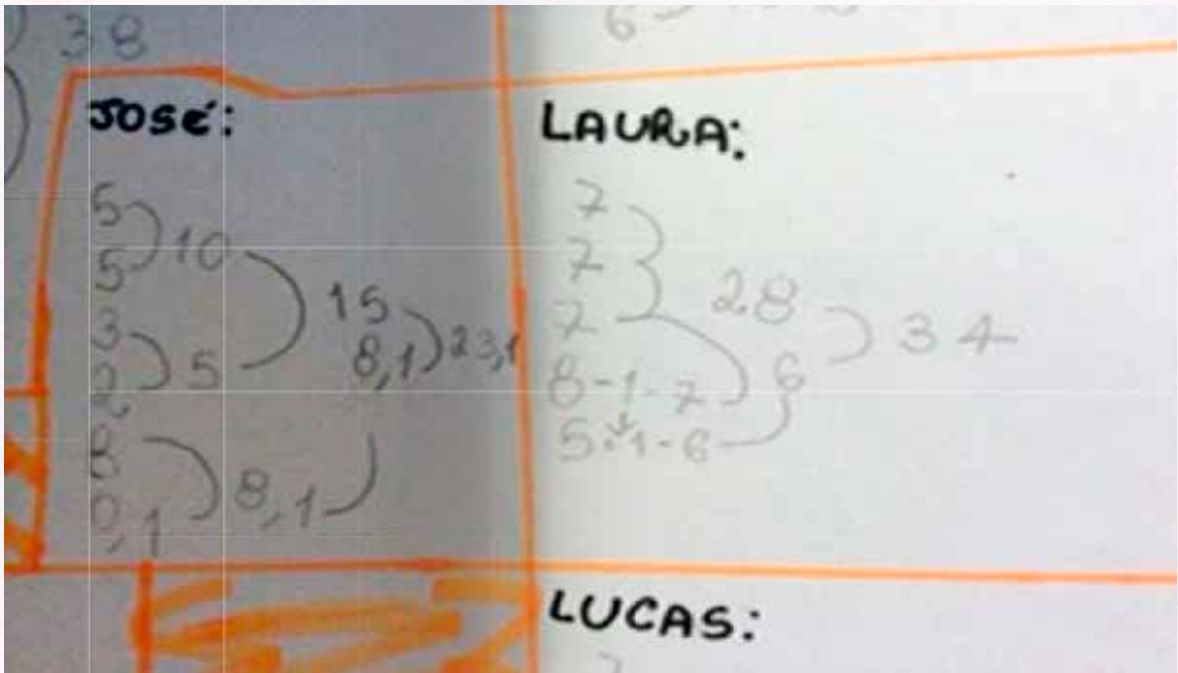 38
6
JOSÉ:
5
5
10
3
2
5
15
8,1
23,1
8
0,1
8,1
LAURA:
7
7
7
8-1-7
28
5+1-6
6
34
LUCAS: